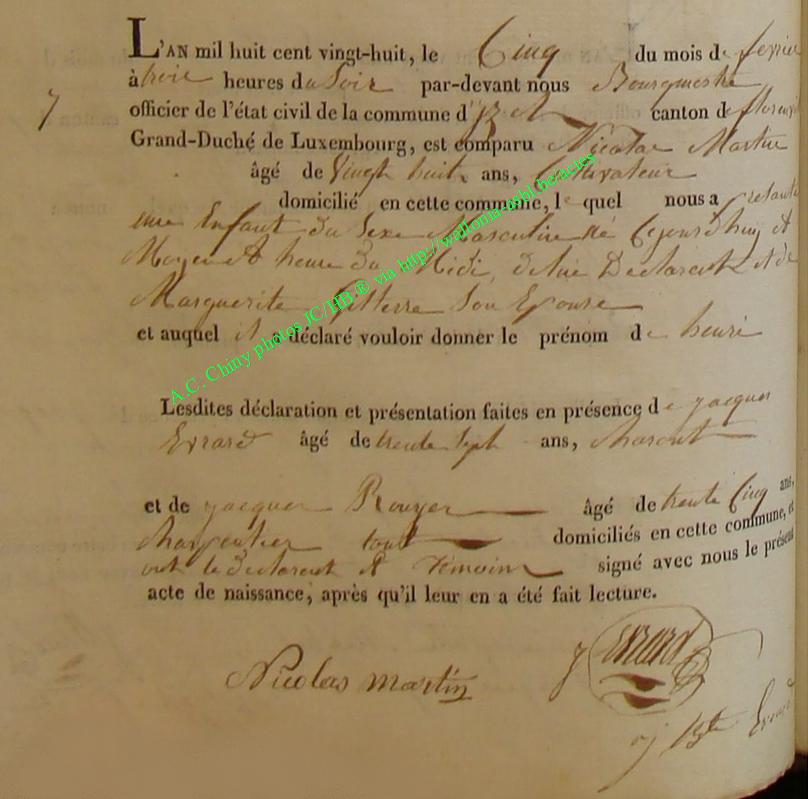 L'AN mil huit cent vingt-huit, le Cinq du mois de fevrier
à trois heures du Soir par-devant nous Bourguestre
officier de l'état civil de la commune d'Izel canton de florenvi
7
Grand-Duché de Luxembourg, est comparu Nicolas Martin
âgé de Vingt huit ans, Cultivateur
domicilié en cette commune, le quel nous a
une Enfant du Sexe Masculin né cejourd'huy
heure du Midi, de lui Declarent et de
Marguerite Son Epouse
et auquel il a déclaré vouloir donner le prénom de henri
A.C. Chiny photos JC/HB ® via http://wallonia-asbl.be/actes
Lesdites déclaration et présentation faites en présence de jacques
Evrard âgé de trente Sept ans,
et de jacques Rouyer âgé de trente Cinq ans,
charpentier tout domiciliés en cette commune, et
ont le Declarent et Témoins signé avec nous le présent
acte de naissance, après qu'il leur en a été fait lecture.
Nicolas martin
J Evrard